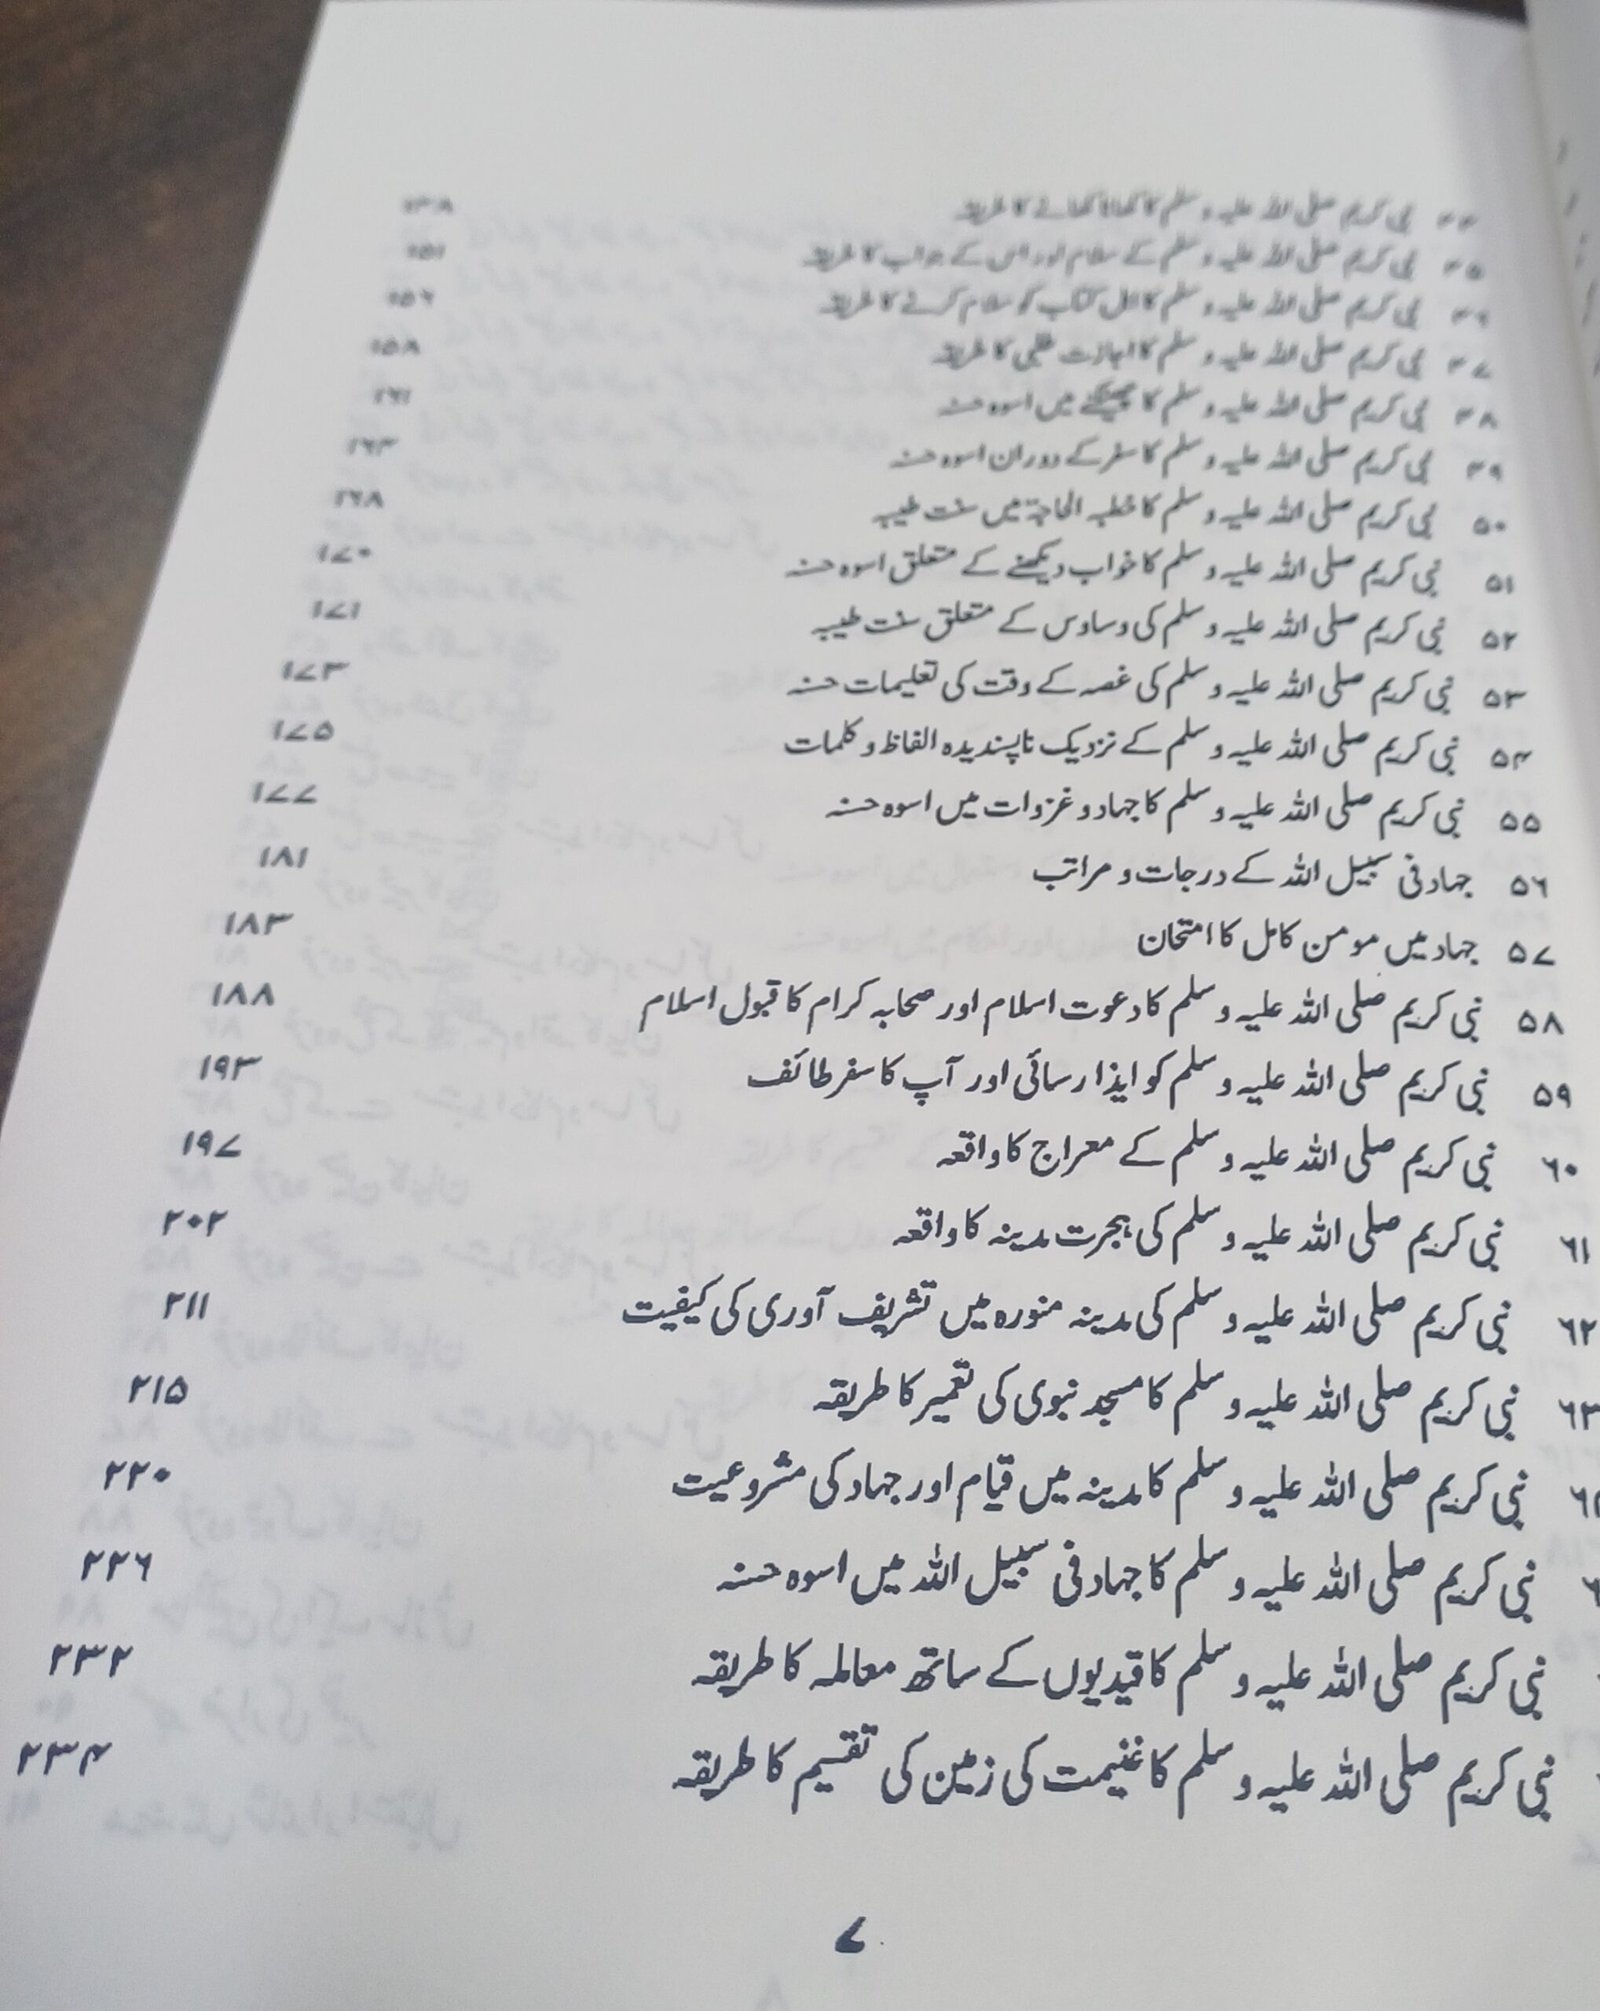 ۴۴ نبی کریم صلی اللہ علیہ و سلم کا کھانا کھانے کا طریقہ ۱۴۸
۴۵ نبی کریم صلی اللہ علیہ و سلم کے سلام اور اس کے جواب کا طریقہ ۱۵۱
۴۶ نبی کریم صلی اللہ علیہ و سلم کا اہل کتاب کو سلام کرنے کا طریقہ ۱۵۶
۴۷ نبی کریم صلی اللہ علیہ و سلم کا اجازت طلبی کا طریقہ ۱۵۸
۴۸ نبی کریم صلی اللہ علیہ و سلم کا چھینکنے میں اسوہ حسنہ ۱۶۱
۴۹ نبی کریم صلی اللہ علیہ و سلم کا سفر کے دوران اسوہ حسنہ ۱۶۳
۵۰ نبی کریم صلی اللہ علیہ و سلم کا خطبہ الحاجۃ میں سنت طیبہ ۱۶۸
۵۱ نبی کریم صلی اللہ علیہ و سلم کا خواب دیکھنے کے متعلق اسوہ حسنہ ۱۷۰
۵۲ نبی کریم صلی اللہ علیہ و سلم کی وساوس کے متعلق سنت طیبہ ۱۷۱
۵۳ نبی کریم صلی اللہ علیہ و سلم کی غصہ کے وقت کی تعلیمات حسنہ ۱۷۳
۵۴ نبی کریم صلی اللہ علیہ و سلم کے نزدیک ناپسندیدہ الفاظ و کلمات ۱۷۵
۵۵ نبی کریم صلی اللہ علیہ و سلم کا جہاد و غزوات میں اسوہ حسنہ ۱۷۷
۵۶ جہاد فی سبیل اللہ کے درجات و مراتب ۱۸۱
۵۷ جہاد میں مومن کامل کا امتحان ۱۸۳
۵۸ نبی کریم صلی اللہ علیہ و سلم کا دعوت اسلام اور صحابہ کرام کا قبول اسلام ۱۸۸
۵۹ نبی کریم صلی اللہ علیہ و سلم کو ایذا رسائی اور آپ کا سفر طائف ۱۹۳
۶۰ نبی کریم صلی اللہ علیہ و سلم کے معراج کا واقعہ ۱۹۷
۶۱ نبی کریم صلی اللہ علیہ و سلم کی ہجرت مدینہ کا واقعہ ۲۰۲
۶۲ نبی کریم صلی اللہ علیہ و سلم کی مدینہ منورہ میں تشریف آوری کی کیفیت ۲۱۱
۶۳ نبی کریم صلی اللہ علیہ و سلم کا مسجد نبوی کی تعمیر کا طریقہ ۲۱۵
نبی کریم صلی اللہ علیہ و سلم کا مدینہ میں قیام اور جہاد کی مشروعیت ۲۲۰
نبی کریم صلی اللہ علیہ و سلم کا جہاد فی سبیل اللہ میں اسوہ حسنہ ۲۲۶
نبی کریم صلی اللہ علیہ و سلم کا قیدیوں کے ساتھ معاملہ کا طریقہ ۲۳۲
نبی کریم صلی اللہ علیہ و سلم کا غنیمت کی زمین کی تقسیم کا طریقہ ۲۳۴
۷